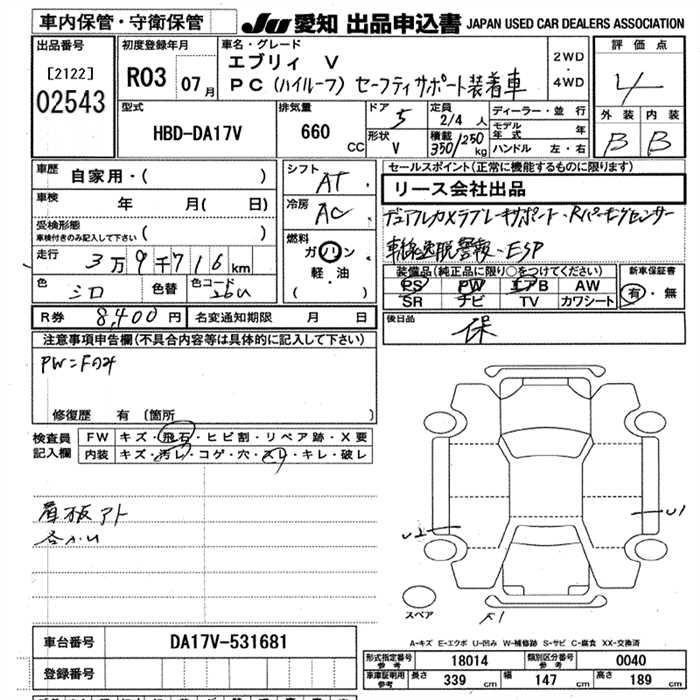 車内保管・守衛保管
JU 愛知 出品申込書 JAPAN USED CAR DEALERS ASSOCIATION
出品番号
[2122]
02543
初度登録年月
R03 07月
車名・グレード
エブリィ V
PC (ハイルーフ) セーフティサポート装着車
2WD・4WD
評価点
4
外装 内装
B B
型式
HBD-DA17V
排気量
660 CC
ドア
5
形状
V
定員
2/4人
積載
350/250 kg
ディーラー・並行
モデル年式 年
ハンドル 左・右
車歴
自家用・( )
車検
年 月( 日)
受検形態
車検付きのみ記入して下さい ( )
走行
3万9千716km
色
シロ
色替
色コード
26U
シフト
AT
冷房
AC
燃料
ガソリン
軽・油
( )
セールスポイント(正常に機能するものに限ります)
リース会社出品
デュアルカメラブレーキサポート・Rパーキングセンサー
車線逸脱警報・ESP
装備品(純正品に限り○をつけてください)
PS PW エアB AW
SR ナビ TV カワシート
新車保証書
有・無
R券 8,400円
名変通知期限 月 日
後日品
保
注意事項申告欄(不具合内容等は具体的に記入して下さい)
PW=Fのみ
修復歴 有(箇所 )
検査員記入欄
FW キズ・飛石・ヒビ割・リペア跡・X要
内装 キズ・汚レ・コゲ・穴・スレ・キレ・破レ
看板アト
U2
U1
スペア
A-キズ E-エクボ U-凹み W-補修跡 S-サビ C-腐食 XX-交換済
車台番号
DA17V-531681
登録番号
形式指定番号 参考
18014
類別区分番号 参考
0040
車庫証明用 参考
長さ 339 cm
幅 147 cm
高さ 189 cm